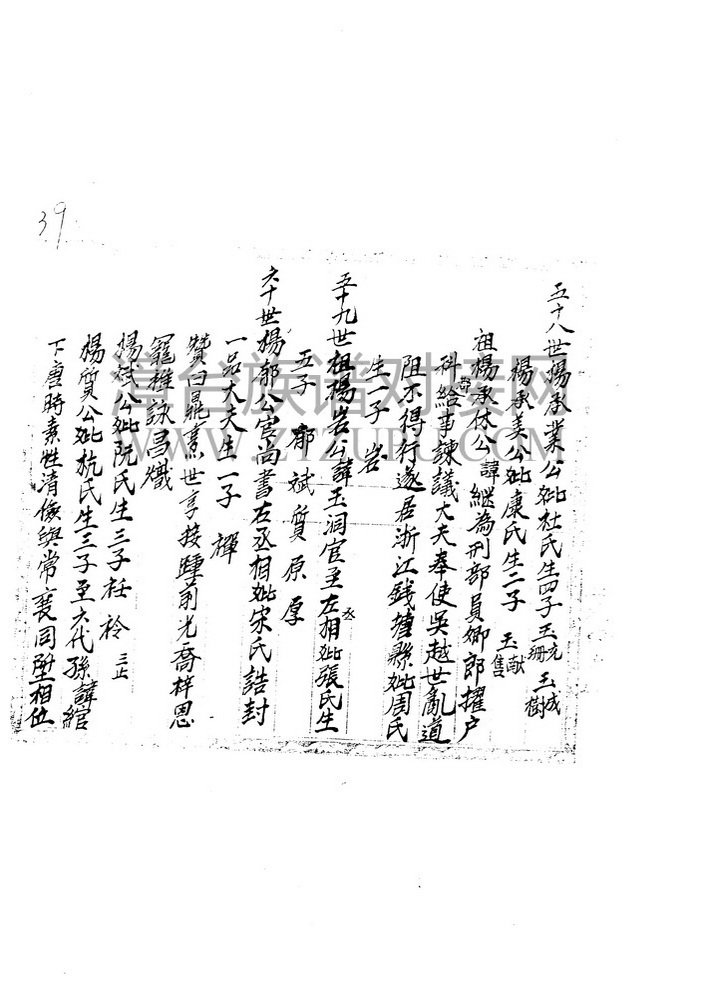 39
五十八世楊承業公妣杜氏生四子玉充玉珊玉成玉樹
楊承美公妣康氏生二子玉献玉售
祖楊承休公諱継為刑部員卿郎擢户
科給事諫議大夫奉使吳越世亂道
阻不得行遂居浙江錢塘縣妣周氏
生一子岩
五十九世祖楊岩公諱玉洞官至左相妣張氏生
五子郁斌質原厚
六十世楊郁公官尚書右丞相妣宋氏誥封
一品大夫生一子
贊曰 世亨接踵前光喬梓恩
寵雅詠昌熾
楊斌公妣阮氏生三子 三止
楊質公妣杭氏生三子至六代孫諱綰
下唐時素性清儉與常袞同 相位
港台族谱对接网
WWW.ZTZUPU.COM